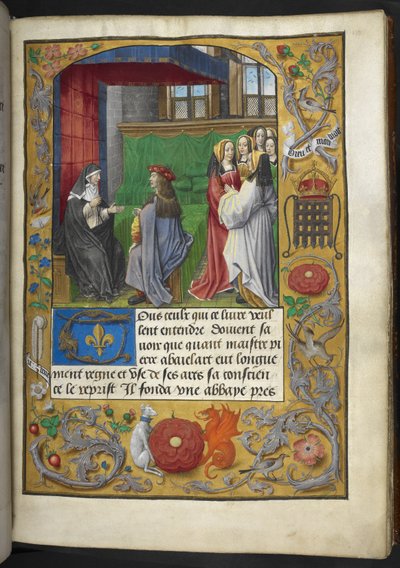 Dieu et mon droit
Ous ceulx qui ce liure veul
lent entendre doiuent sa
uoir que quant maistre pi
erre abaelart eut longue
ment regne et vse de ses ars sa conscien
ce le reprist Il fonda vne abbaye pres